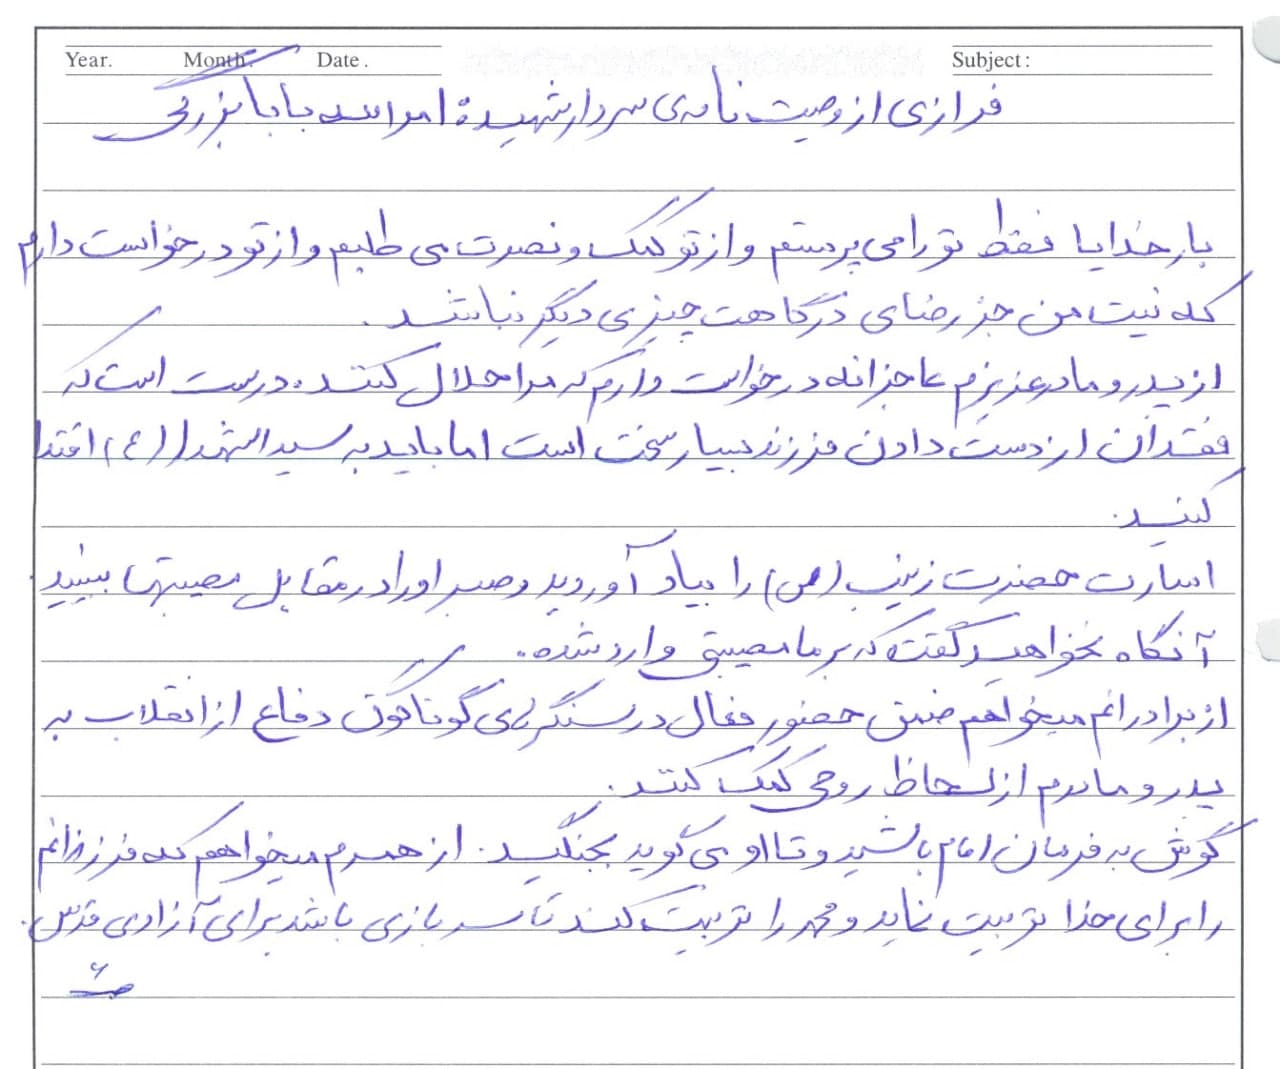 Year. Month. Date. Subject:
فرازی از وصیت نامه‌ی سردار شهید: امراله بابا بزرگی
بار خدایا فقط تو را می پرستم و از تو کمک و نصرت می طلبم و از تو درخواست دارم
که نیت من جز رضای درگاهت چیزی دیگر نباشد.
از پدر و مادر عزیزم عاجزانه درخواست دارم که مرا حلال کنند. درست است که
فقدان از دست دادن فرزند بسیار سخت است اما باید به سید الشهدا (ع) اقتدا
کنید.
اسارت حضرت زینب (س) را بیاد آورید و صبر او را در مقابل مصیبتها ببینید
آنگاه نخواهید گفت که بر ما مصیبتی وارد شده.
از برادرانم میخواهم ضمن حضور فعال در سنگرهای گوناگون دفاع از انقلاب به
پدر و مادرم از لحاظ روحی کمک کنند.
گوش به فرمان امام باشید و تا او می گوید بجنگید. از همسرم میخواهم که فرزندانم
را برای خدا تربیت نماید و محمد را تربیت کند تا سربازی باشد برای آزادی قدس.